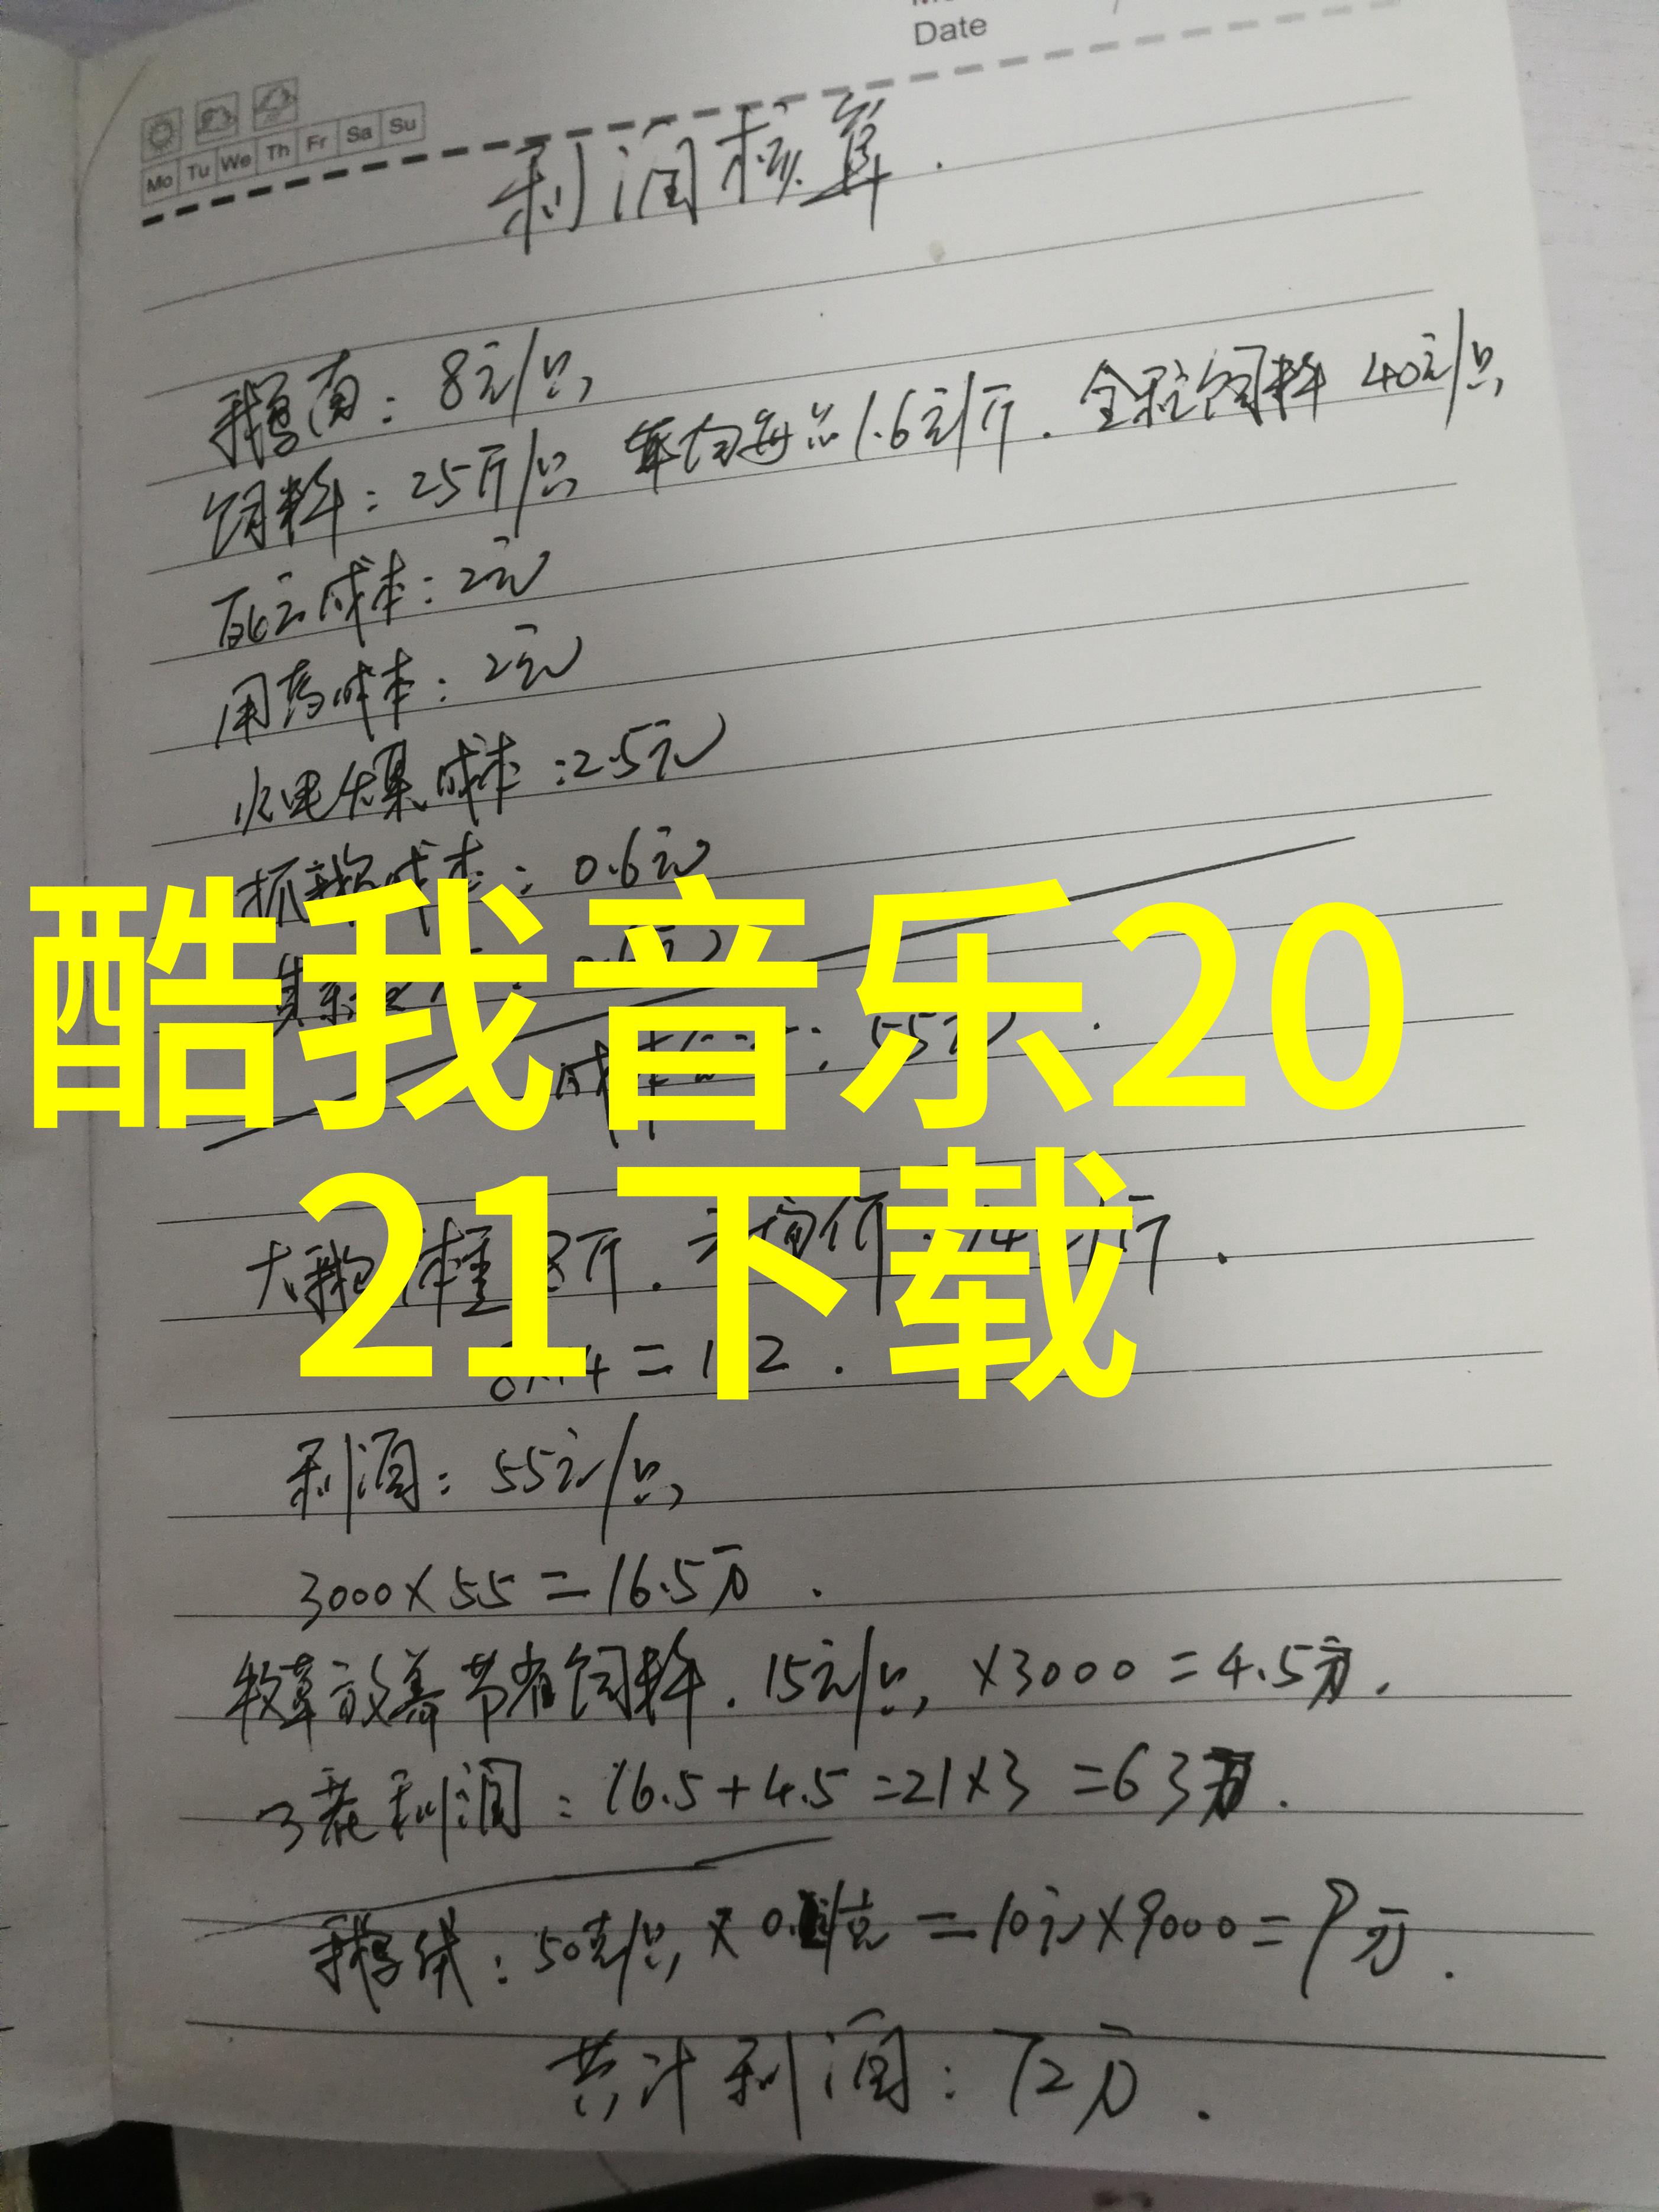 Date
Mo Tu We Th Fr Sa Su
利润核算.
鹅苗: 8元/只
饲料: 25斤/只 平均每斤1.6元/斤. 全程饲料 40元/只
死亡成本: 2元
用药成本: 2元
水电煤成本: 2.5元
抓鹅成本: 0.6元
酷我音乐20
55元.
21下载
大鹅体重 8斤.
利润: 55元/只
3000×55=16.5万.
牧草放养节省饲料. 15元/只, ×3000=4.5万.
3茬利润: 16.5+4.5=21×3=63万.
鹅绒: 50克/只 × 克=10元×9000=9万.
共计利润: 72万.